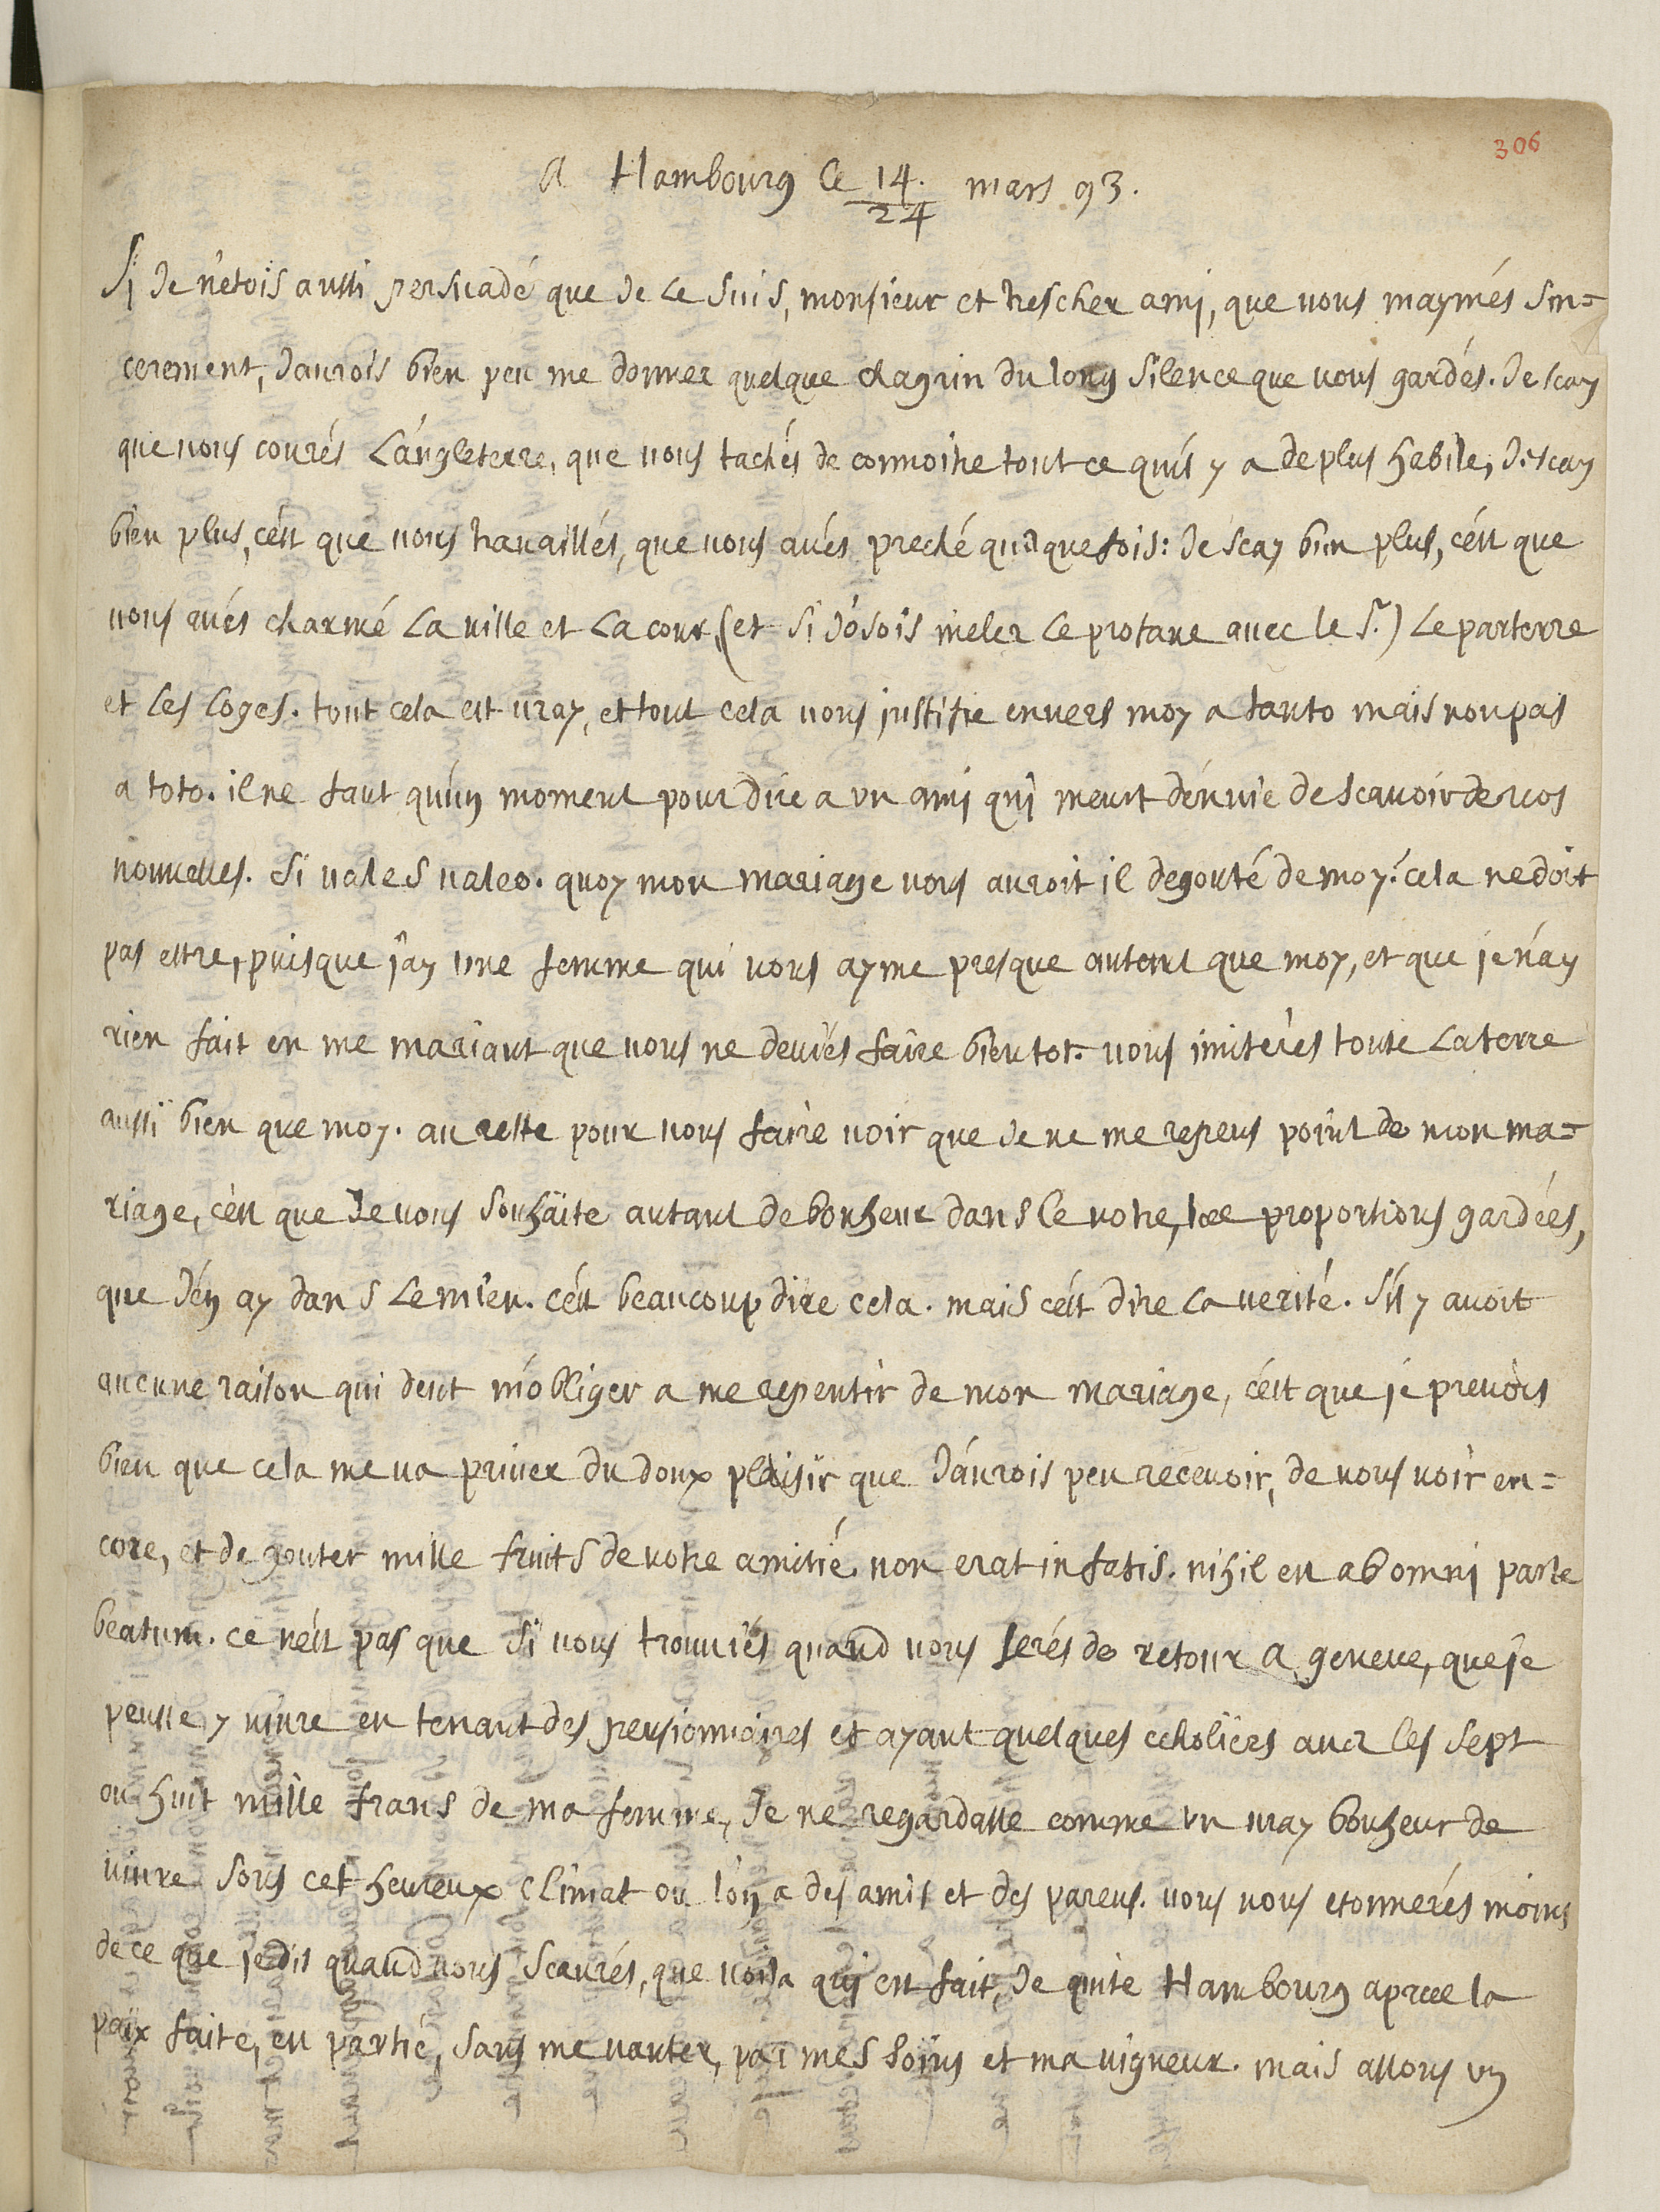 306
A Hambourg le 14./24 mars 93.
Si Je n'etois aussi persuadé que Je le suis, monsieur et tres cher ami, que vous m'aymés sin=
cerement, J'aurois bien peu me donner quelque chagrin du long silence que vous gardés. Je scay
que vous courés L'angleterre, que vous tachés de connoitre tout ce qu'il y a de plus habile, Je scay
bien plus, c'est que vous travaillés, que vous avés preché quelquefois: Je scay bien plus, c'est que
vous avés charmé La ville et La cour, (et si J'osois meler Le profane avec le St.) Le parterre
et Les Loges. tout cela est vray, et tout cela vous justifie envers moy a tanto mais non pas
a toto. il ne faut qu'un moment pour dire a un ami qui meurt d'envie de scavoir de vos
nouvelles. Si vales valeo. quoy mon mariage vous auroit il degouté de moy? cela ne doit
pas estre, puisque j'ay une femme qui vous ayme presque autant que moy, et que je n'ay
rien fait en me mariant que vous ne deviés faire bientot. vous imiterés toute La terre
aussi bien que moy. au reste pour vous faire voir que Je ne me repens point de mon ma=
riage, c'est que Je vous souhaite autant de bonheur dans Le votre, proportions gardées,
que J'en ay dans Le mien. c'est beaucoup dire cela. mais c'est dire La verité. S'il y avoit
aucune raison qui deut m'obliger a me repentir de mon mariage, c'est que je prevois
bien que cela me va priver du doux plaisir que J'aurois peu recevoir, de vous voir en=
core, et de gouter mille fruits de votre amitié. non erat in fatis. nihil est ab omni parte
beatum. ce n'est pas que si vous trouviés quand vous serés de retour a geneve, que je
peusse y vivre en tenant des pensionnaires et ayant quelques echoliers avec Les sept
ou huit mille frans de ma femme, Je ne regardasse comme un vray bonheur de
vivre sous cet heureux climat ou l'on a des amis et des parens. vous vous etonnerés moins
de ce que je dis quand vous scaurés, que voila qui est fait, Je quite Hambourg apres la
paix faite, en partie, sans me vanter, par mes soins et ma vigueur. mais allons un